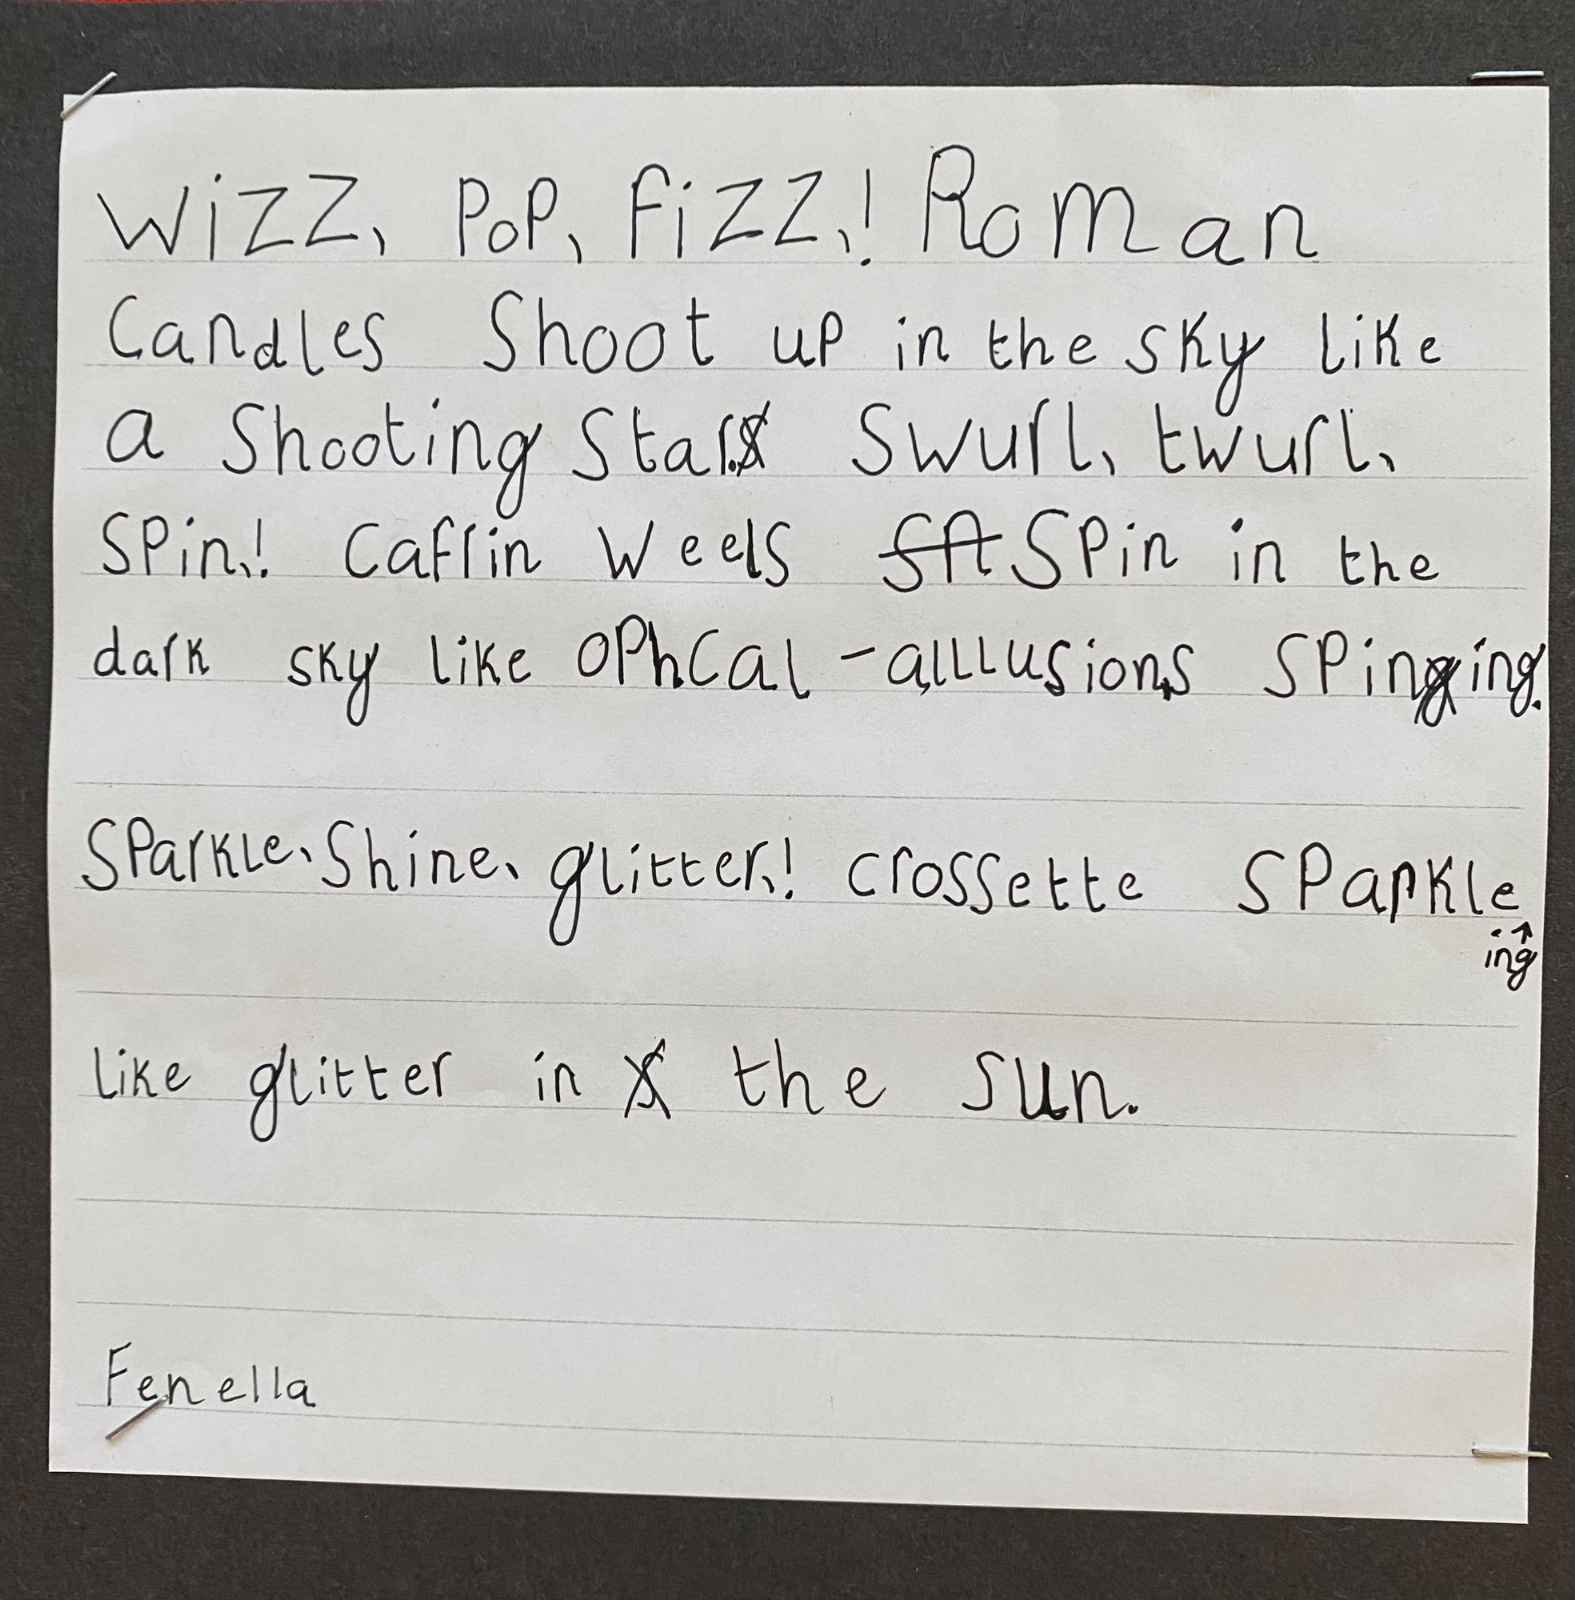 Wizz, Pop, fizz,! Roman
Candles Shoot up in the sky like
a Shooting Star. Swurl, twurl,
Spin,! Caffin Weels Spin in the
dark sky like OPhCal - alllusions SPining.
SParkle, Shine, glitter,! crossette SParkle
ing
like glitter in the sun.
Fenella